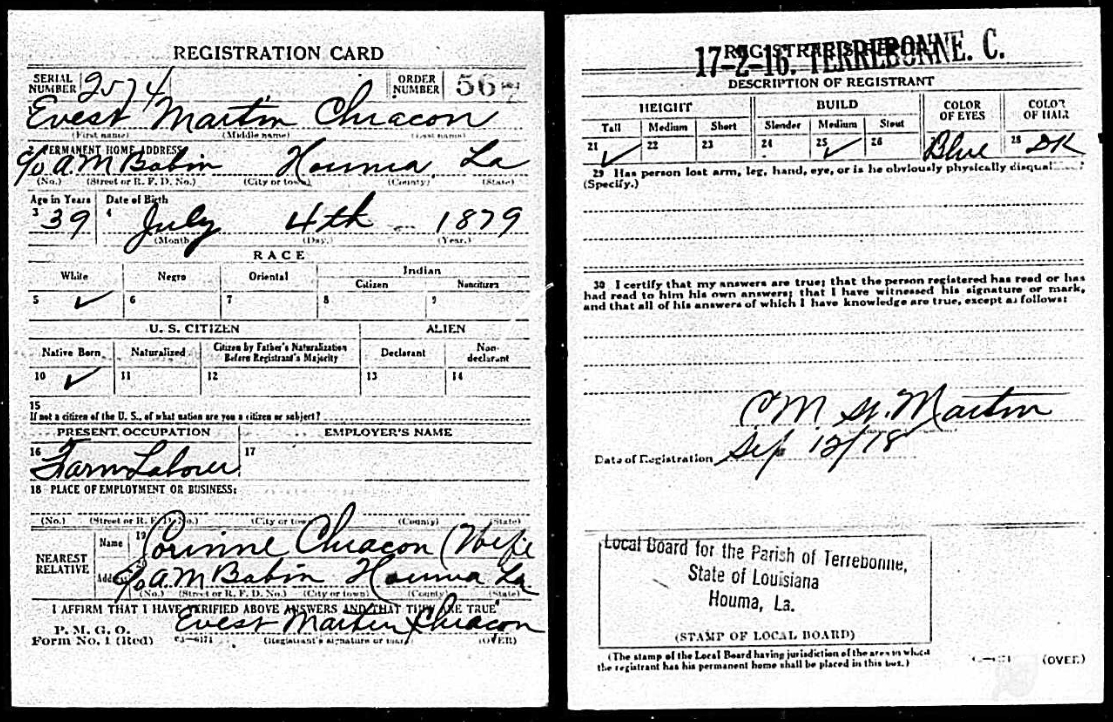 REGISTRATION CARD
SERIAL NUMBER 2574 ORDER NUMBER 56
Evest Martin Chiacon
(First name) (Middle name) (Last name)
2 PERMANENT HOME ADDRESS:
c/o A.M Babin Houma, La
(No.) (Street or R. F. D. No.) (City or town) (County) (State)
Age in Years Date of Birth
3 39 4 July 4th 1879
(Month) (Day.) (Year.)
RACE
White Negro Oriental Indian
Citizen Noncitizen
5 ✓ 6 7 8 9
U. S. CITIZEN ALIEN
Native Born Naturalized Citizen by Father's Naturalization Before Registrant's Majority Declarant Non-declarant
10 ✓ 11 12 13 14
15
If not a citizen of the U. S., of what nation are you a citizen or subject?
PRESENT OCCUPATION EMPLOYER'S NAME
16 Farm Laborer 17
18 PLACE OF EMPLOYMENT OR BUSINESS:
(No.) (Street or R. F. D. No.) (City or town) (County) (State)
NEAREST RELATIVE Name 19 Corinne Chiacon (Wife
Address 20 c/o A.M Babin Houma La
(No.) (Street or R. F. D. No.) (City or town) (County) (State)
I AFFIRM THAT I HAVE VERIFIED ABOVE ANSWERS AND THAT THEY ARE TRUE
P. M. G. O.
Form No. 1 (Red) Evest Martin Chiacon
(Registrant's signature or mark) (OVER)
REGISTRAR'S REPORT
17-2-16. TERREBONNE. C.
DESCRIPTION OF REGISTRANT
HEIGHT BUILD COLOR OF EYES COLOR OF HAIR
Tall Medium Short Slender Medium Stout
21 ✓ 22 23 24 25 ✓ 26 Blue 28 DK
29 Has person lost arm, leg, hand, eye, or is he obviously physically disqual
(Specify.)
30 I certify that my answers are true; that the person registered has read or has
had read to him his own answers; that I have witnessed his signature or mark,
and that all of his answers of which I have knowledge are true, except as follows:
C M St. Martin
Date of Registration Sep 12/18
Local Board for the Parish of Terrebonne,
State of Louisiana
Houma, La.
(STAMP OF LOCAL BOARD)
(The stamp of the Local Board having jurisdiction of the area in which
the registrant has his permanent home shall be placed in this box.)
(OVER)